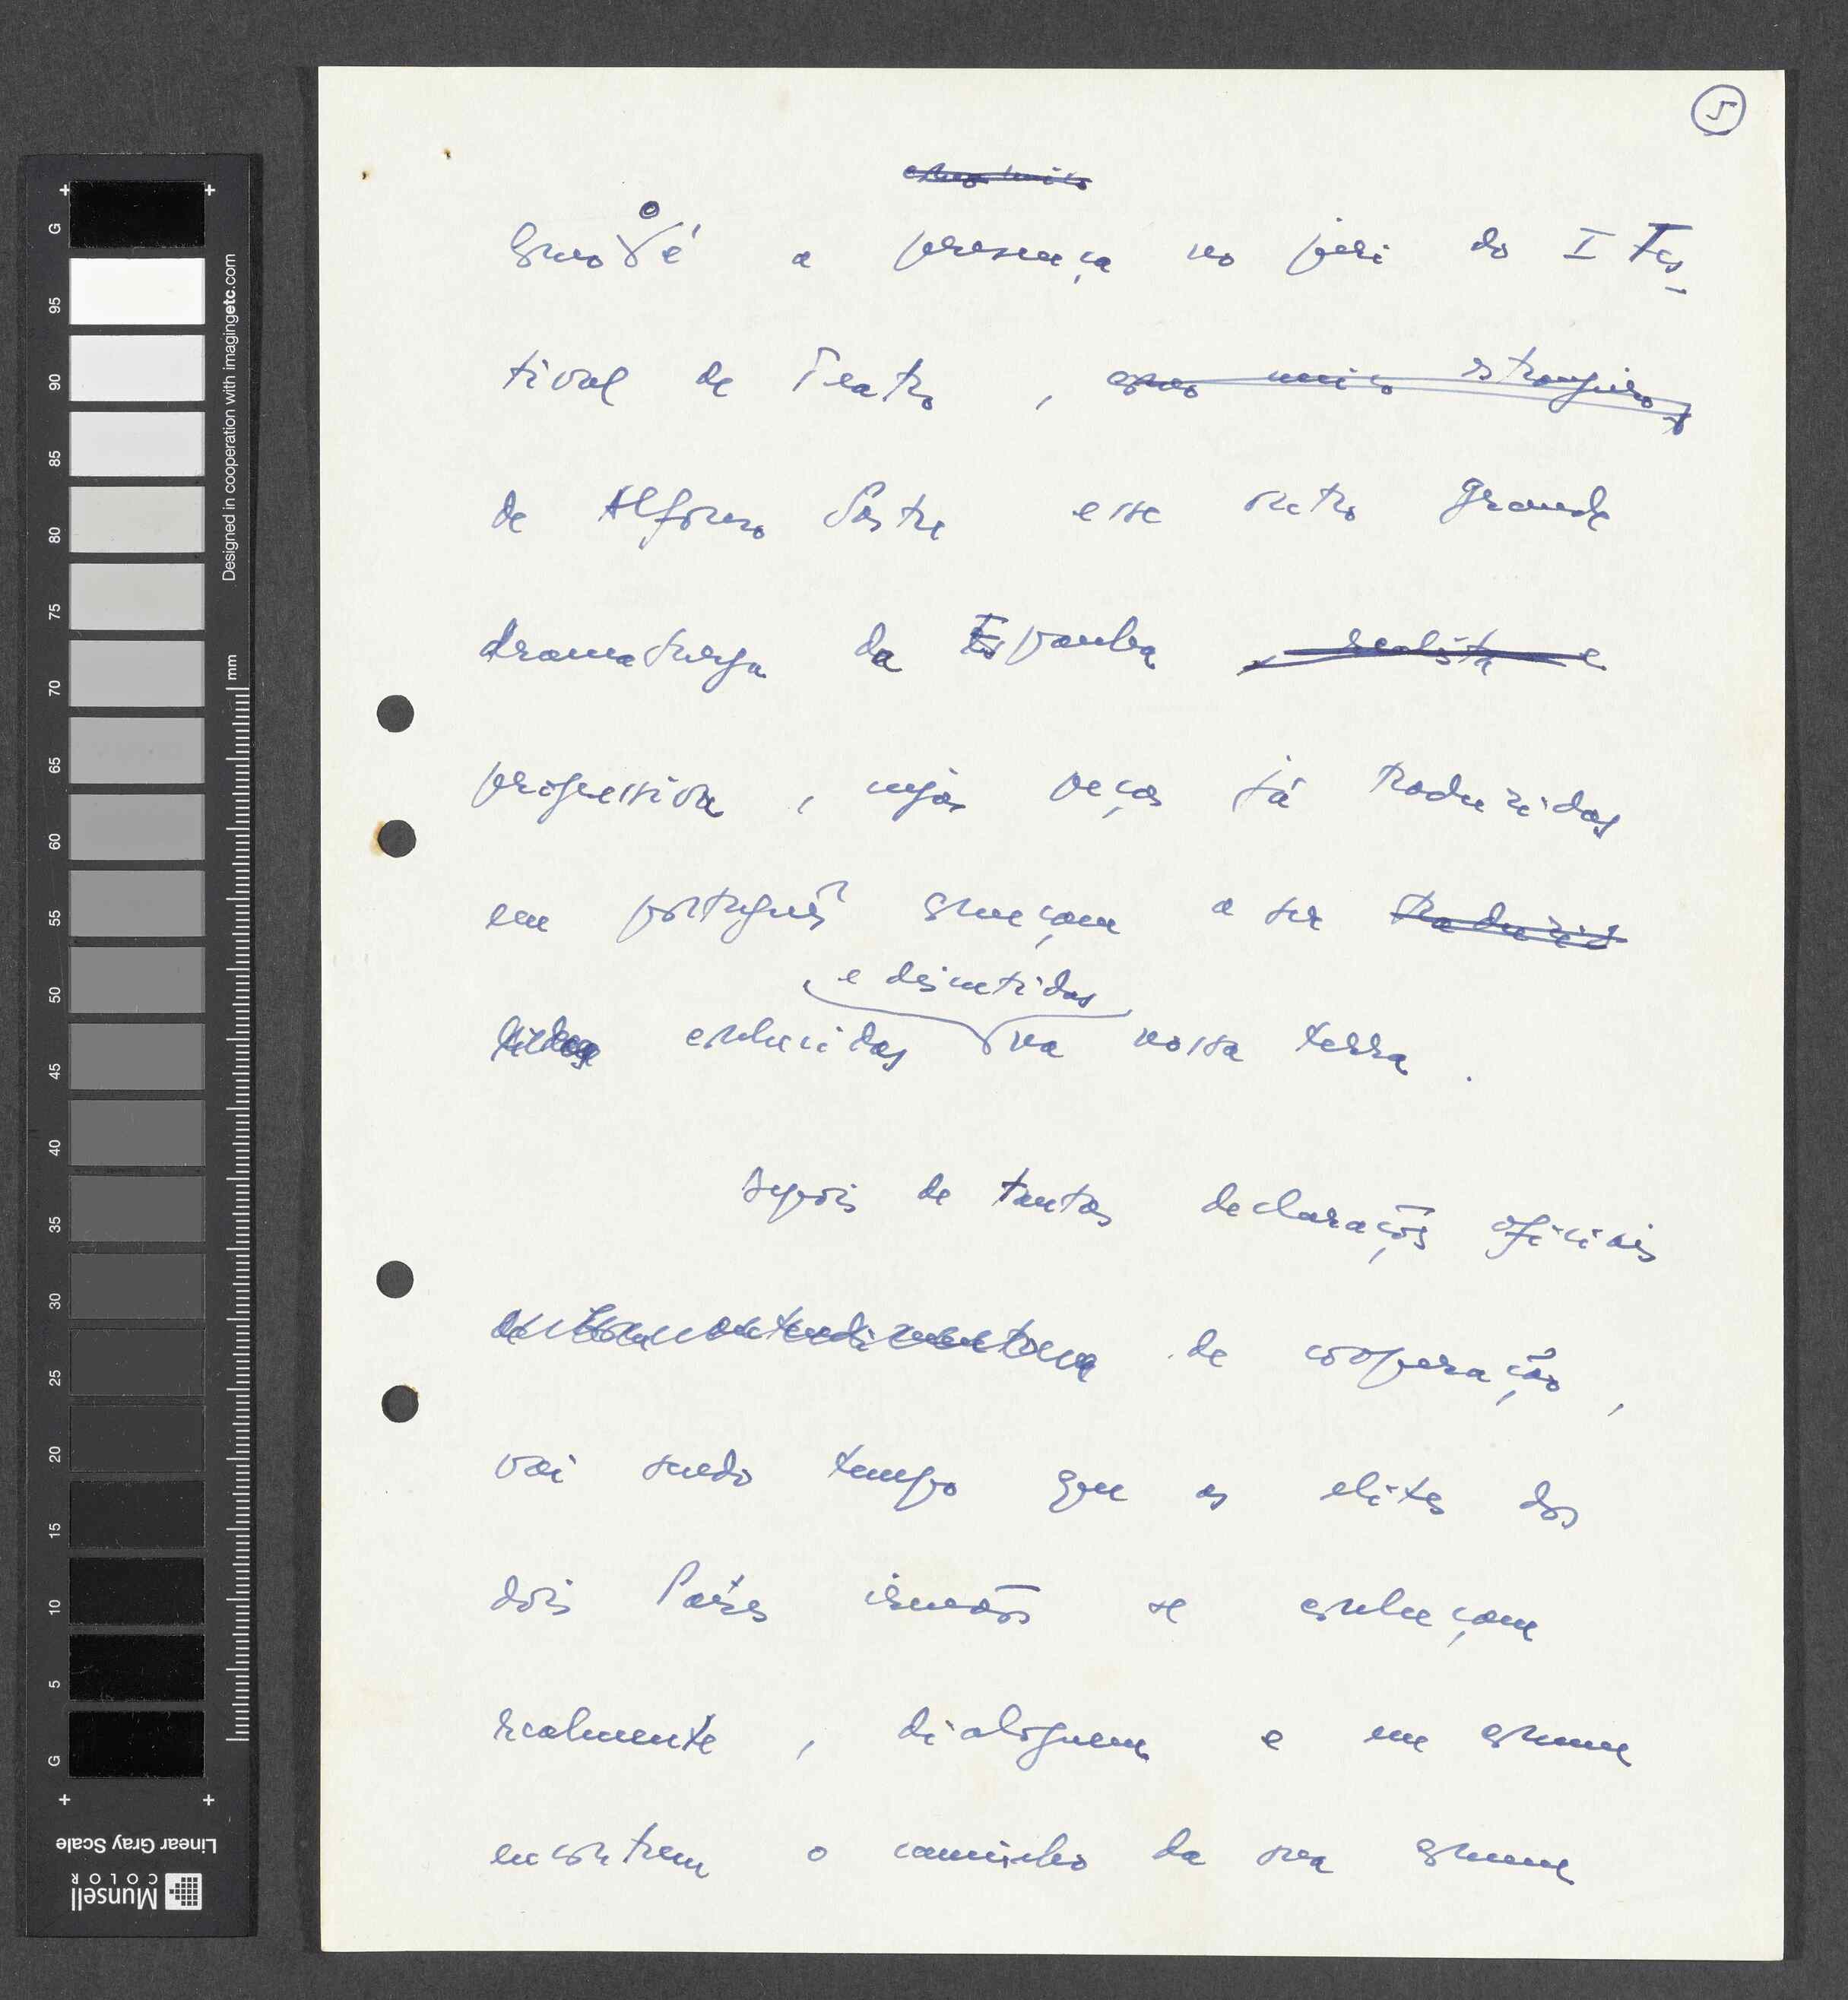 5
como único
como o é a presença no juri do I Fes-
tival de Teatro, como único estrangeiro,
de Alfonso Sastre esse outro grande
dramaturgo da Espanha, realista e
progressiva, cujas peças já traduzidas
em português começam a ser traduzid
lidas conhecidas e discutidas na nossa terra.
Depois de tantas declarações oficiais
de cooperação,
vai sendo tempo que as elites dos
dois Países irmãos se conheçam
realmente, dialoguem e em comum
encontrem o caminho da sua comum
G 95 90 85 80 75 70 65 60 55 50 45 40 35 30 25 20 15 10 5 G
mm
Designed in cooperation with imagingetc.com
Linear Gray Scale
Munsell
COLOR